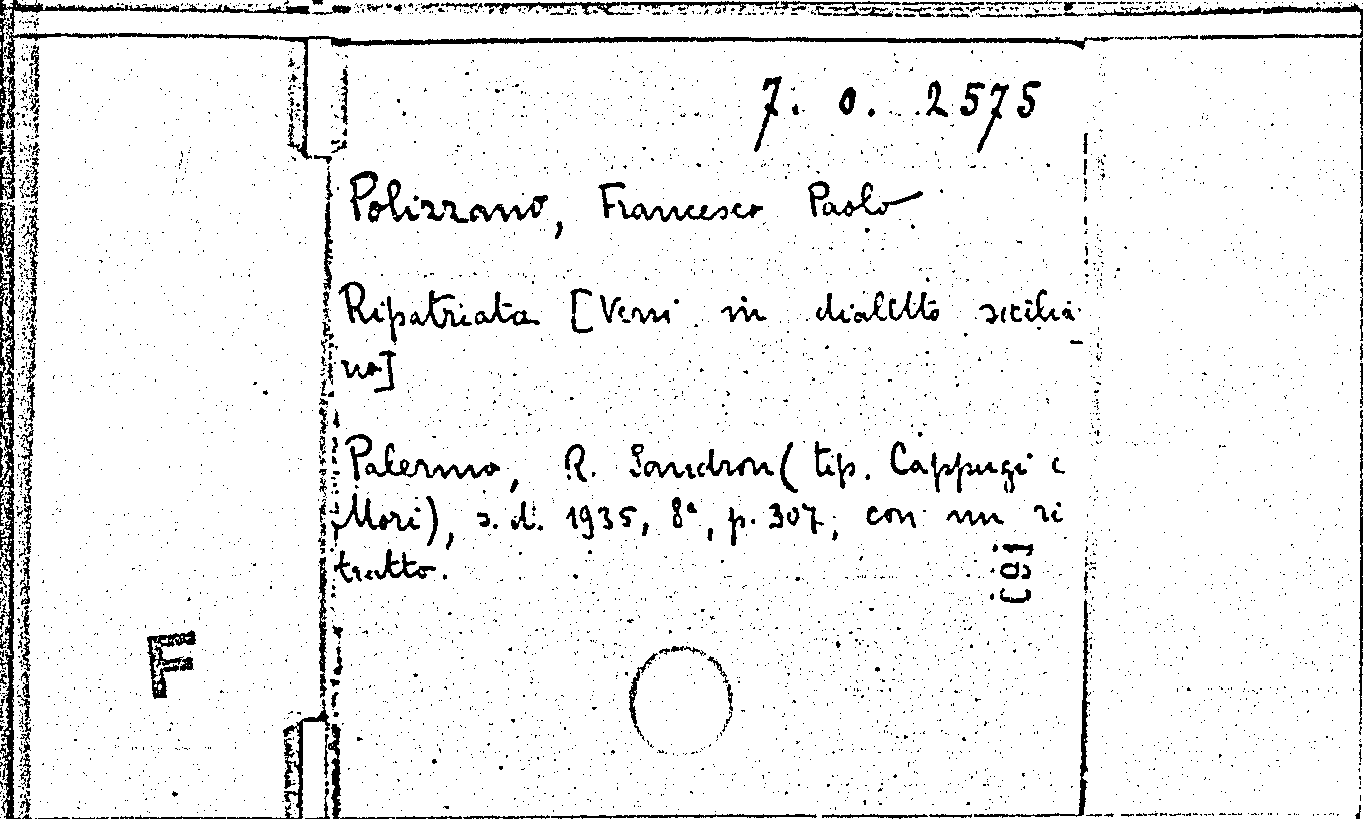 7. 0. 2575
Polizzano, Francesco Paolo
Ripatriata [Versi in dialetto sicilia-
no]
Palermo, R. Sandron (tip. Cappugi e
Mori), s. d. 1935, 8°, p. 307, con un ri
tratto.
F